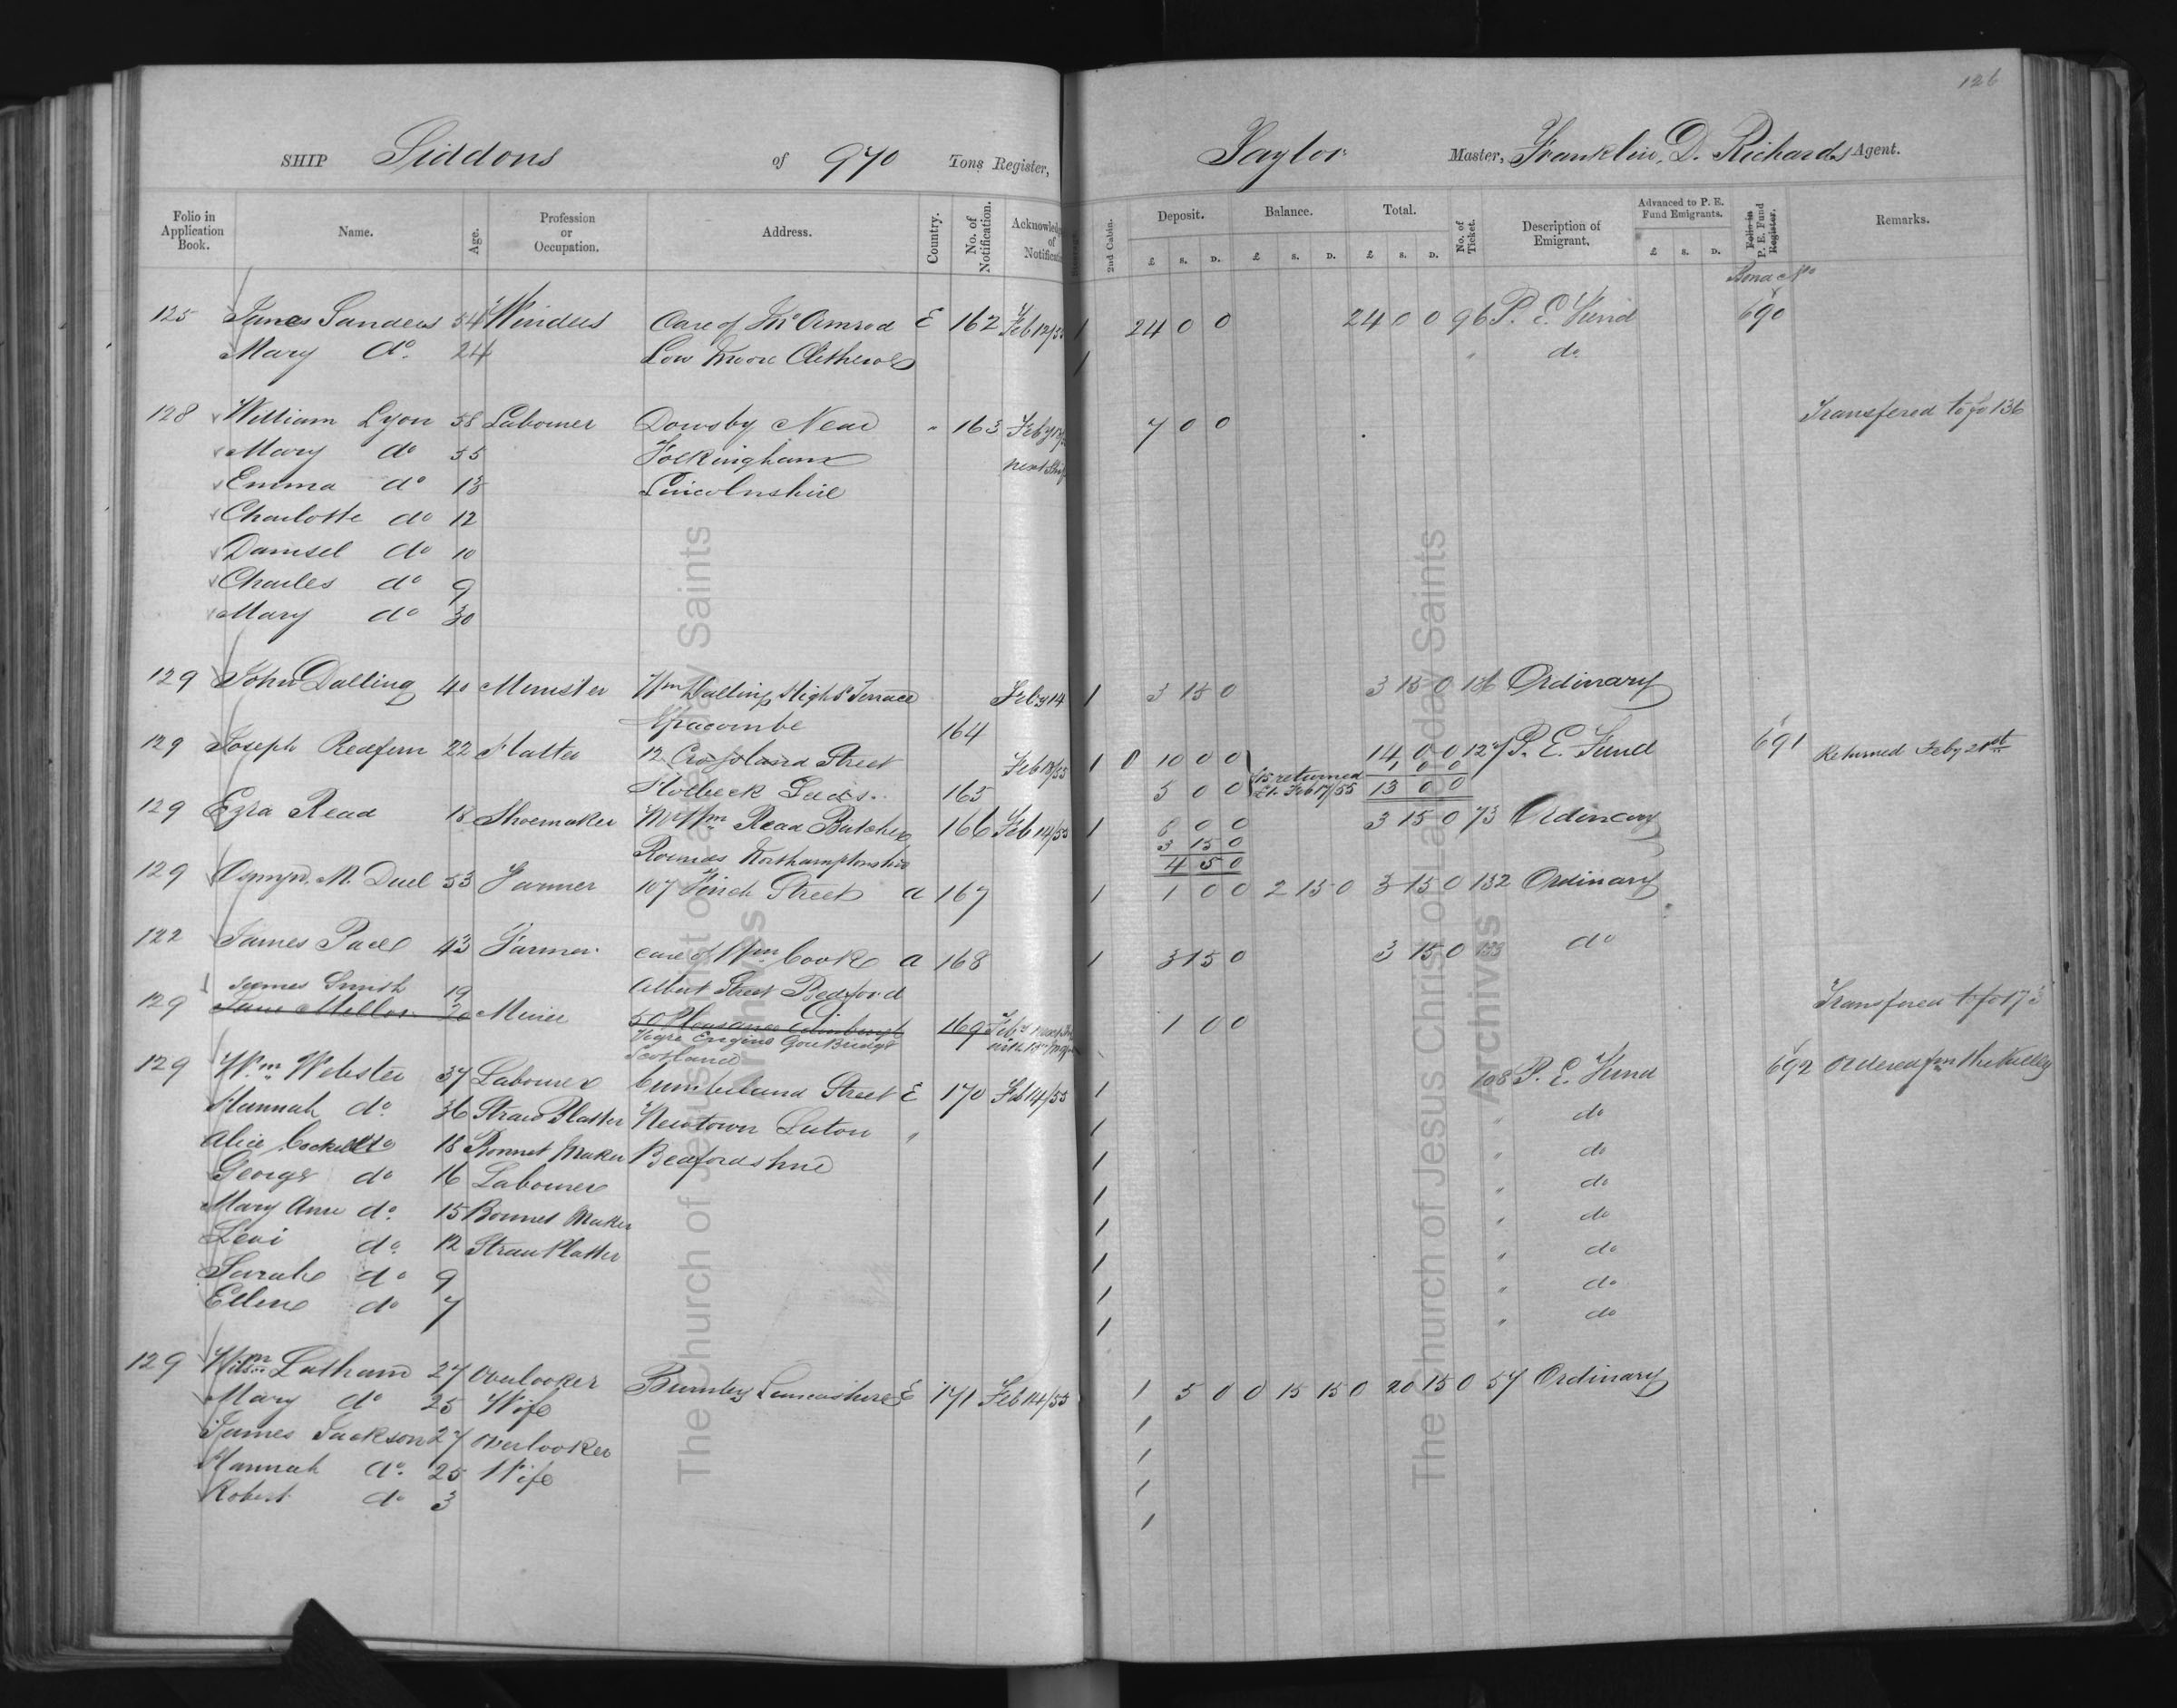 126
SHIP Siddons of 970 Tons Register, Taylor Master, Franklin D. Richards Agent.
Folio in Application Book. Name. Age. Profession or Occupation. Address. Country. No. of Notification. Acknowled of Notificati 2nd Cabin. Deposit. £ s. D. Balance. £ s. D. Total. £ s. D. No. of Ticket. Description of Emigrant. Advanced to P. E. Fund Emigrants. £ s. D. Folio in P. E. Fund Register. Remarks.
Bond No
125 James Sanders 54 Winder Care of Jno Ormrod E 162 Feb 12/55 1 24 0 0 24 0 0 96 P. E. Fund 690
Mary do 24 Low Moore Clitheroe 1 " do
128 William Lyon 58 Labourer Dowsby Near " 163 Feby 7 0 0 Transfered to fo 136
Mary do 55 Folkingham next Ship
Emma do 13 Lincolnshire
Charlotte do 12
Damsel do 10
Charles do 9
Mary do 30
129 John Dalling 40 Minister Wm Dalling High St Terrace Feby 14 1 3 15 0 3 15 0 Ordinary
Ilfracombe 164
129 Joseph Redfern 22 Hatter 12 Crossland Street Feb 13/55 1 0 10 0 0 14 0 0 127 P. E. Fund 691 Returned Feby 21st
Holbeck Leeds. 165 5 0 0 returned £1. Feb 17/55 1 0 0
13 0 0
129 Ezra Read 18 Shoemaker Mr Wm Read Butcher 166 Feb 14/55 1 8 0 0 3 15 0 73 Ordinary
Rounds Northamptonshire 3 15 0
4 5 0
129 Osmyn. M. Duel 53 Farmer 107 Finch Street a 167 1 1 0 0 2 15 0 3 15 0 132 Ordinary
122 James Pace 43 Farmer care of Wm Cook a 168 1 3 15 0 3 15 0 133 do
James Smith 19 Albert Street Bedford
129 Jane Mellor 20 Miner 50 Pleasance Edinburgh 169 Feby 1 0 0 Transfered to fo 173
Vogrie Engine Gore Bridge
Scotland
129 Wm Webster 37 Labourer Cumberland Street E 170 Feb 14/55 1 108 P. E. Fund 692 Ordered fm the Valley
Hannah do 36 Straw Platter Newtown Luton " 1 " do
Alice Cockett do 18 Bonnet Maker Bedfordshire 1 " do
George do 16 Labourer 1 " do
Mary Ann do 15 Bonnet Maker 1 " do
Levi do 12 Straw Platter 1 " do
Sarah do 9 1 " do
Ellen do 7 1 " do
129 Wm Latham 27 Overlooker Burnley Lancashire E 171 Feb 14/55 1 5 0 0 15 15 0 20 15 0 57 Ordinary
Mary do 25 Wife 1
James Jackson 27 Overlooker 1
Hannah do 25 Wife 1
Robert do 3 1
The Church of Jesus Christ of Latter-day Saints
Archives
The Church of Jesus Christ of Latter-day Saints
Archives